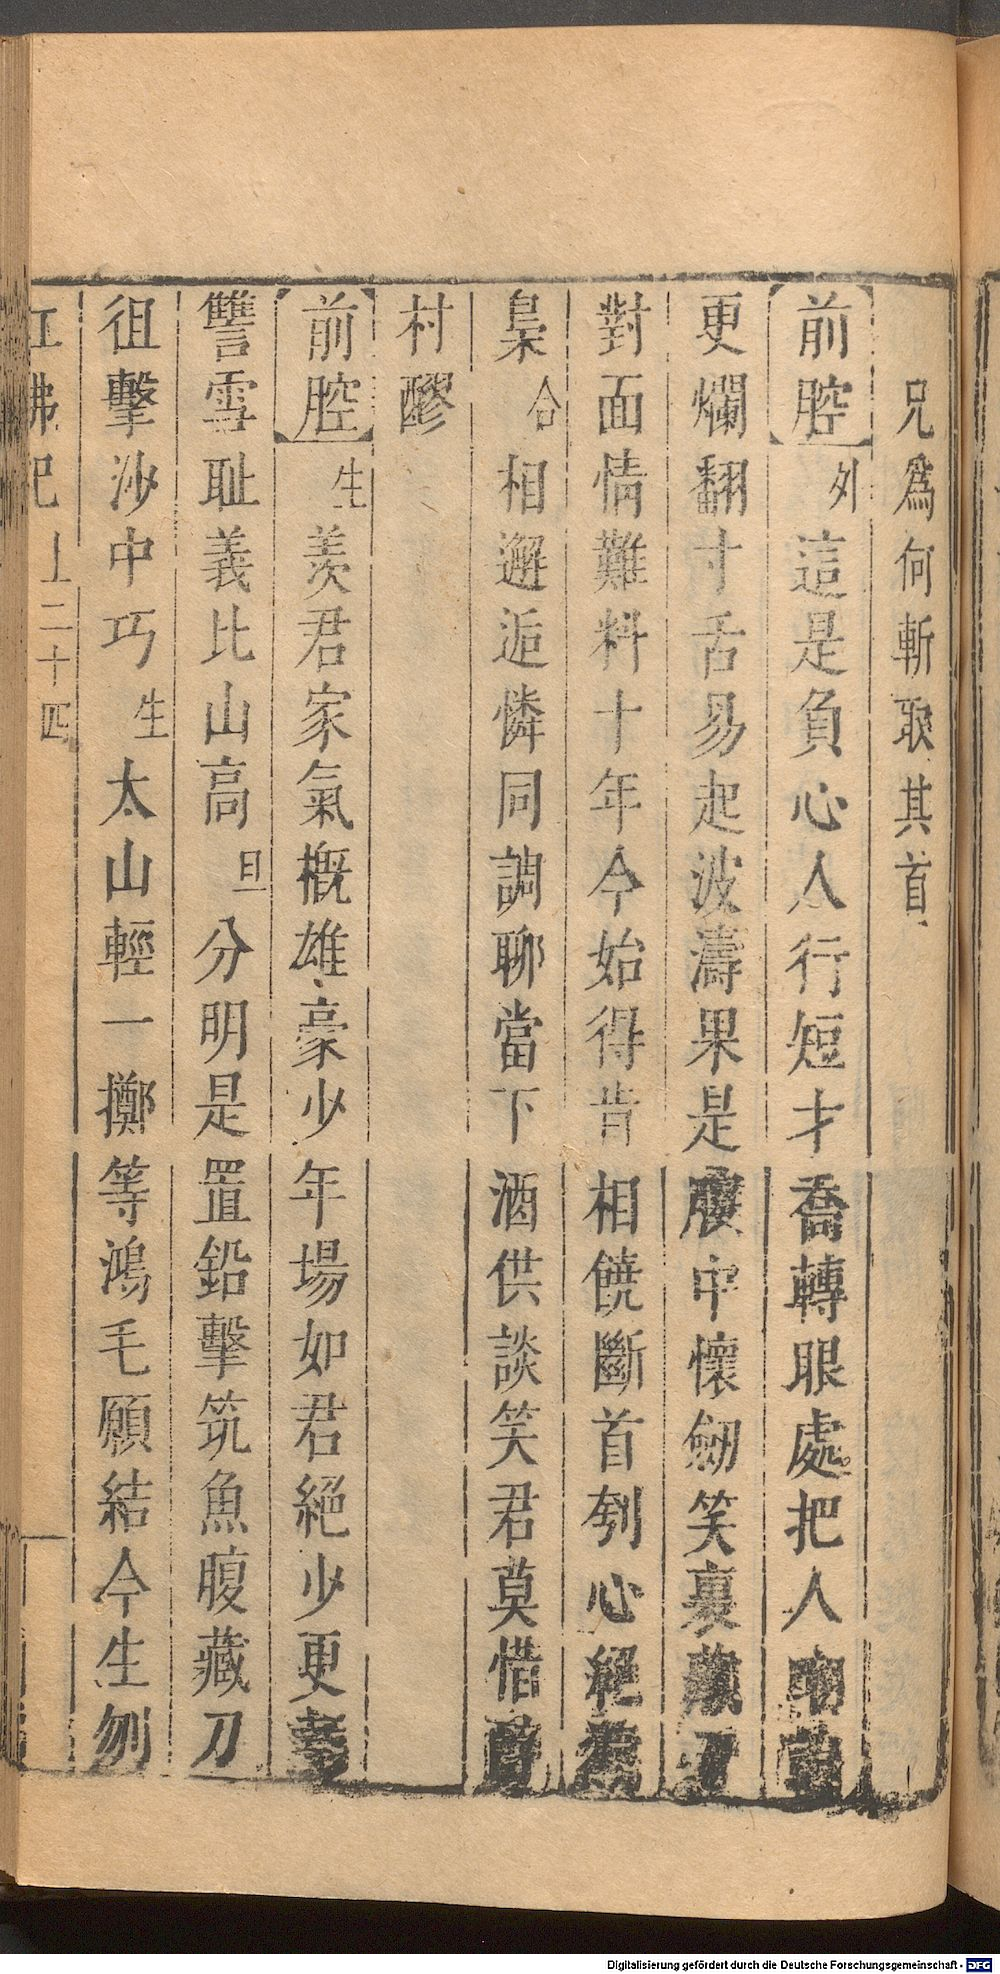 兄爲何斬取其首
前腔 外 這是負心人行短才喬轉眼處把人
更爛翻寸舌易起波濤果是腹中懷劒笑裏藏刀
對面情難料十年今始得肯相饒斷首刳心絕
梟 合 相邂逅憐同調聊當下酒供談笑君莫惜
村醪
前腔 生 羨君家氣槪雄豪少年場如君絕少更
讐雪耻義比山高 旦 分明是置鉛擊筑魚腹藏刀
徂擊沙中巧 生 太山輕一擲等鴻毛願結今生刎
紅拂記 上 二十四
Digitalisierung gefördert durch die Deutsche Forschungsgemeinschaft - DFG